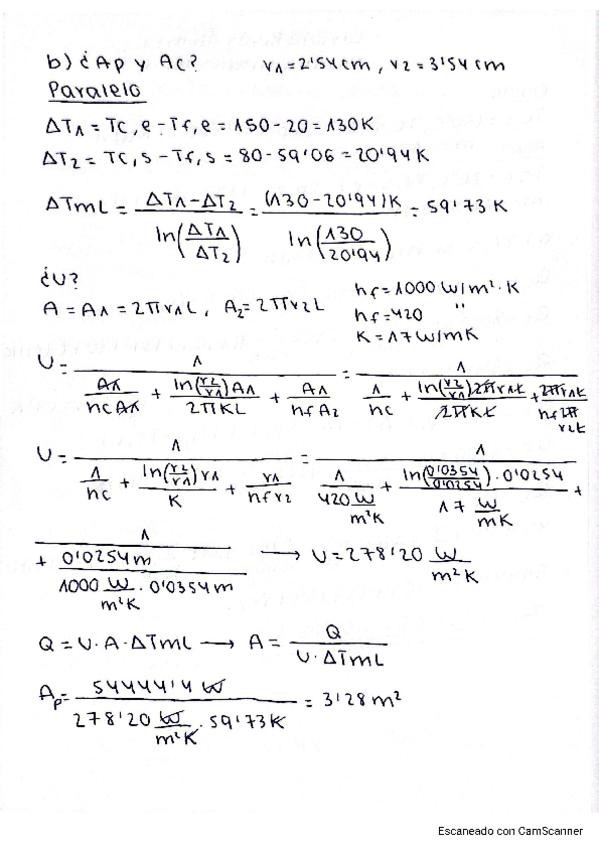 b) ¿Ap y Ac? r1 = 2'54 cm, r2 = 3'54 cm
Paralelo
ΔT1 = Tc,e - Tf,e = 150 - 20 = 130K
ΔT2 = Tc,s - Tf,s = 80 - 59'06 = 20'94 K
ΔTmL = (ΔT1 - ΔT2) / ln(ΔT1/ΔT2) = (130 - 20'94)K / ln(130/20'94) = 59'73 K
¿U?
hf = 1000 W/m²·K
A = A1 = 2πr1L, A2 = 2πr2L
hf = 420 "
K = 17 W/mK
U = 1 / (A1/(hcA1) + ln(r2/r1)A1/(2πKL) + A1/(hfA2)) = 1 / (1/hc + ln(r2/r1)2πr1L/(2πKL) + 2πr1L/(hf2πr2L))
U = 1 / (1/hc + ln(r2/r1)r1/K + r1/(hfr2)) = 1 / (1/(420 W/m²K) + ln(0'0354/0'0254)·0'0254/(17 W/mK) +
+ 0'0254m/(1000 W/m²K · 0'0354m)) → U = 278'20 W/m²K
Q = U·A·ΔTmL → A = Q/(U·ΔTmL)
Ap = 54444'4 W / (278'20 W/m²K · 59'73K) = 3'28 m²
Escaneado con CamScanner